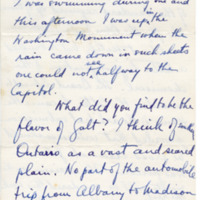 I was swimming during one and
this afternoon I was up in the
Washington Monument when the
rain came down in such sheets
one could not see halfway to the
Capitol.
What did you find to be the
flavor of Galt? I think of
Ontario as a vast and seared
plain. No part of the automobile
trip from Albany to Madison